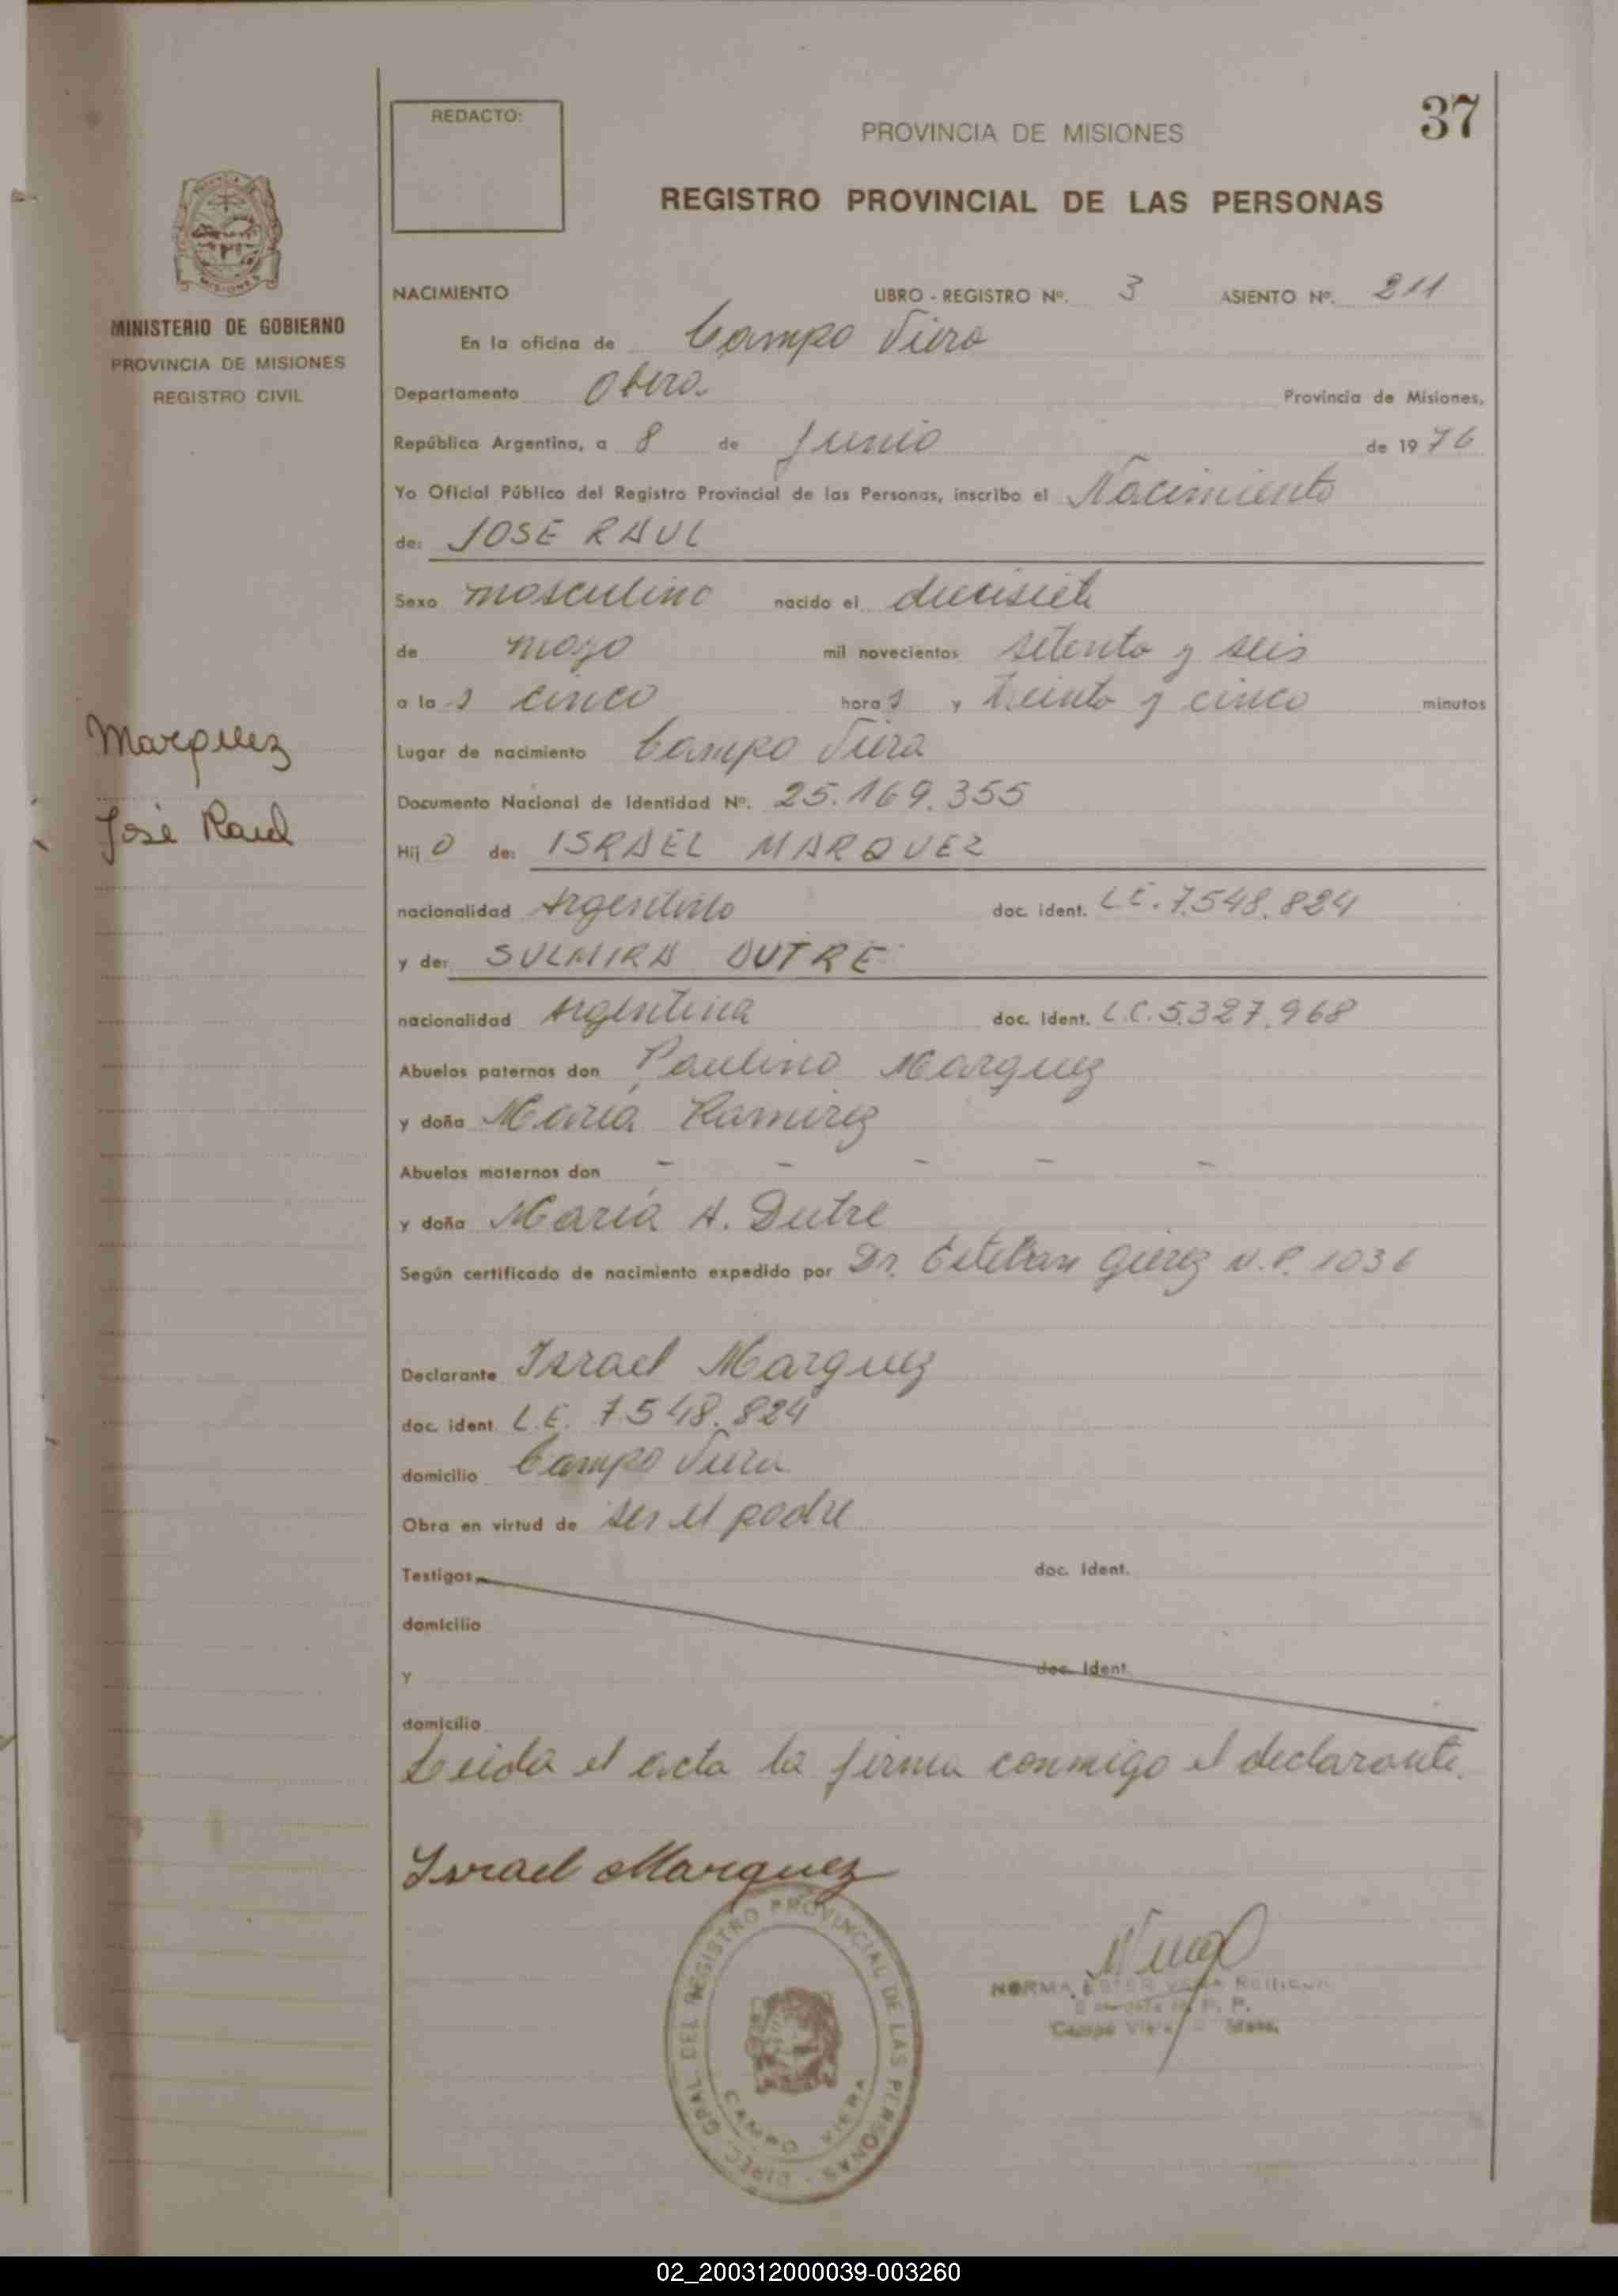 37
REDACTO:
PROVINCIA DE MISIONES
REGISTRO PROVINCIAL DE LAS PERSONAS
MINISTERIO DE GOBIERNO
PROVINCIA DE MISIONES
REGISTRO CIVIL
Marquez
José Raul
NACIMIENTO LIBRO - REGISTRO Nº. 3 ASIENTO Nº. 211
En la oficina de Campo Viera
Departamento Obera Provincia de Misiones,
República Argentina, a 8 de Junio de 1976
Yo Oficial Público del Registro Provincial de las Personas, inscribo el Nacimiento
de: JOSE RAUL
Sexo masculino nacido el diecisiete
de mayo mil novecientos setenta y seis
a las cinco horas y treinta y cinco minutos
Lugar de nacimiento Campo Viera
Documento Nacional de Identidad Nº. 25.169.355
Hijo de: ISRAEL MARQUEZ
nacionalidad Argentino doc. ident. L.E. 7.548.824
y de: SULMIRA DUTRE
nacionalidad Argentina doc. ident. L.C. 5.327.968
Abuelos paternos don Paulino Marquez
y doña María Ramirez
Abuelos maternos don - - - - -
y doña María A. Dutre
Según certificado de nacimiento expedido por Dr. Esteban 1036
Declarante Israel Marquez
doc. ident. L.E. 7.548.824
domicilio Campo Viera
Obra en virtud de ser el padre
Testigos doc. ident.
domicilio
y doc. ident.
domicilio
Leida el acta la firma conmigo el declarante.
Israel Marquez
DIREC. GRAL. DEL REGISTRO PROVINCIAL DE LAS PERSONAS
CAMPO VIERA
NORMA ESTER
Campo Viera
02_200312000039-003260